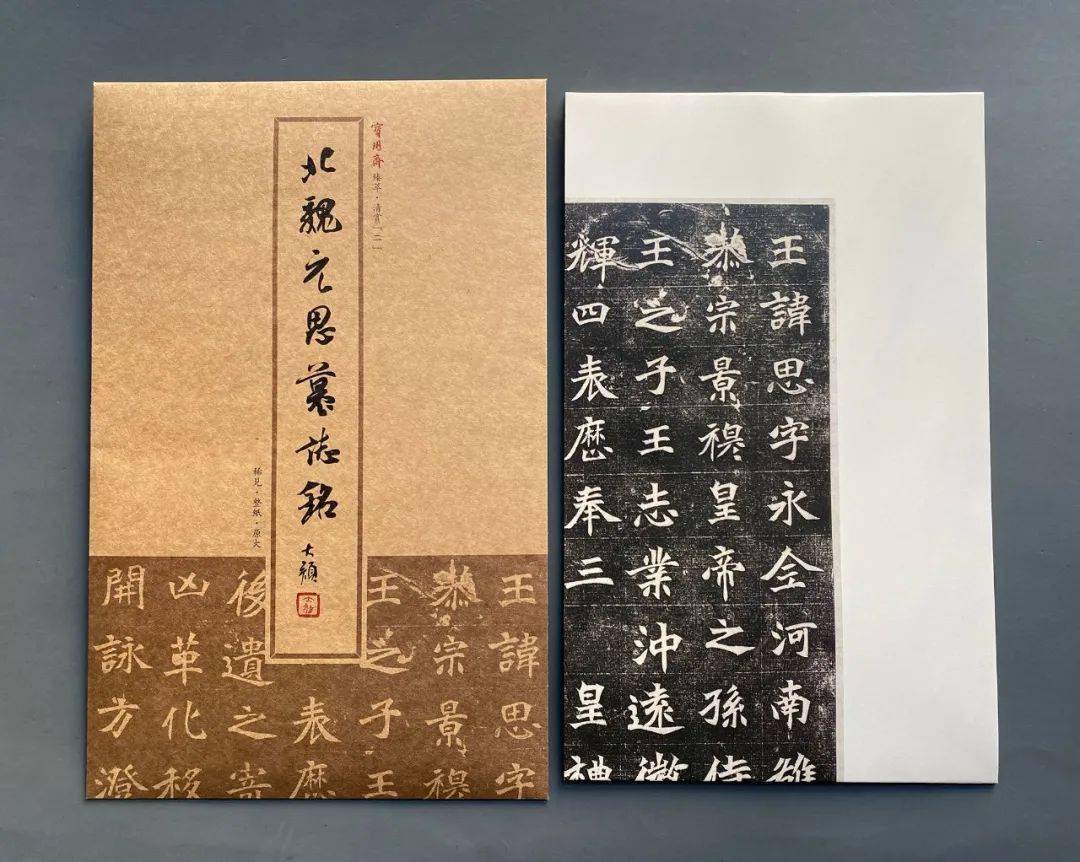 寶用齋 臻萃·清賞「二」
北魏元思墓誌銘
稀見·整紙·原大
王諱思字
恭宗景穆
王之子王
表歷
後遺之寄
凶革化移
開詠芳
王諱思字永仝河南雒
恭宗景穆皇帝之孫侍
王之子王志業沖遠徵
輝四表歷奉三 皇禮